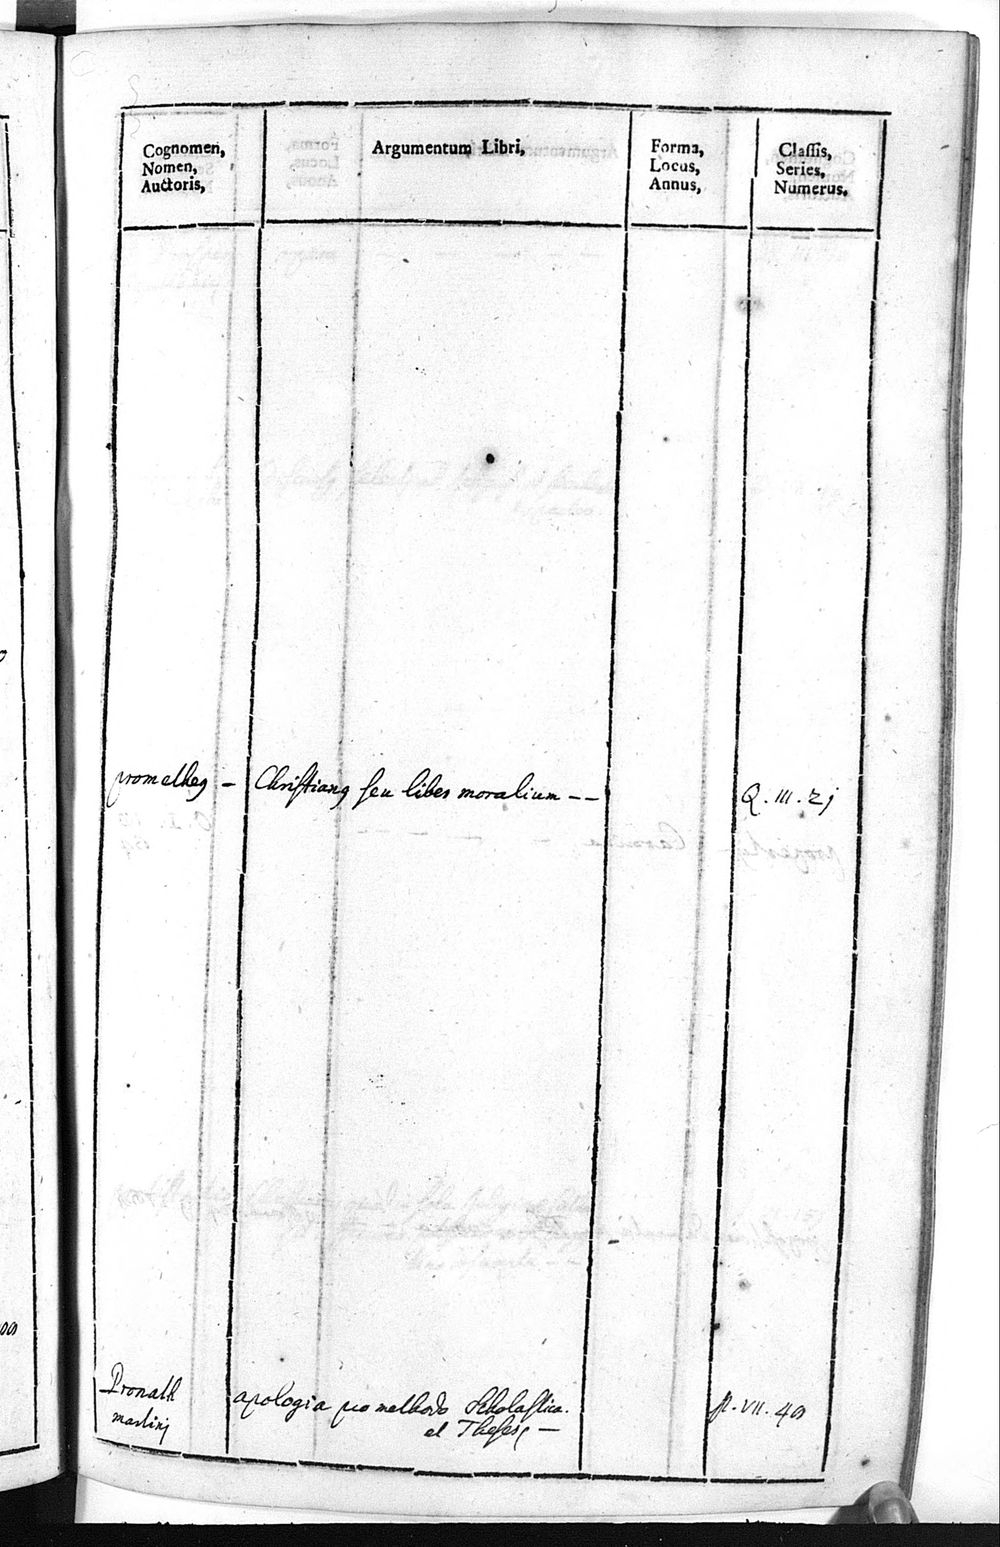 Cognomen,
Nomen,
Auctoris,
Argumentum Libri,
Forma,
Locus,
Annus,
Classis,
Series,
Numerus.
prometheus – Christianus seu liber moralium – – Q. III. 21
Pronath
martini
apologia pro methodo Scholastica.
et Theses –
VII. 49